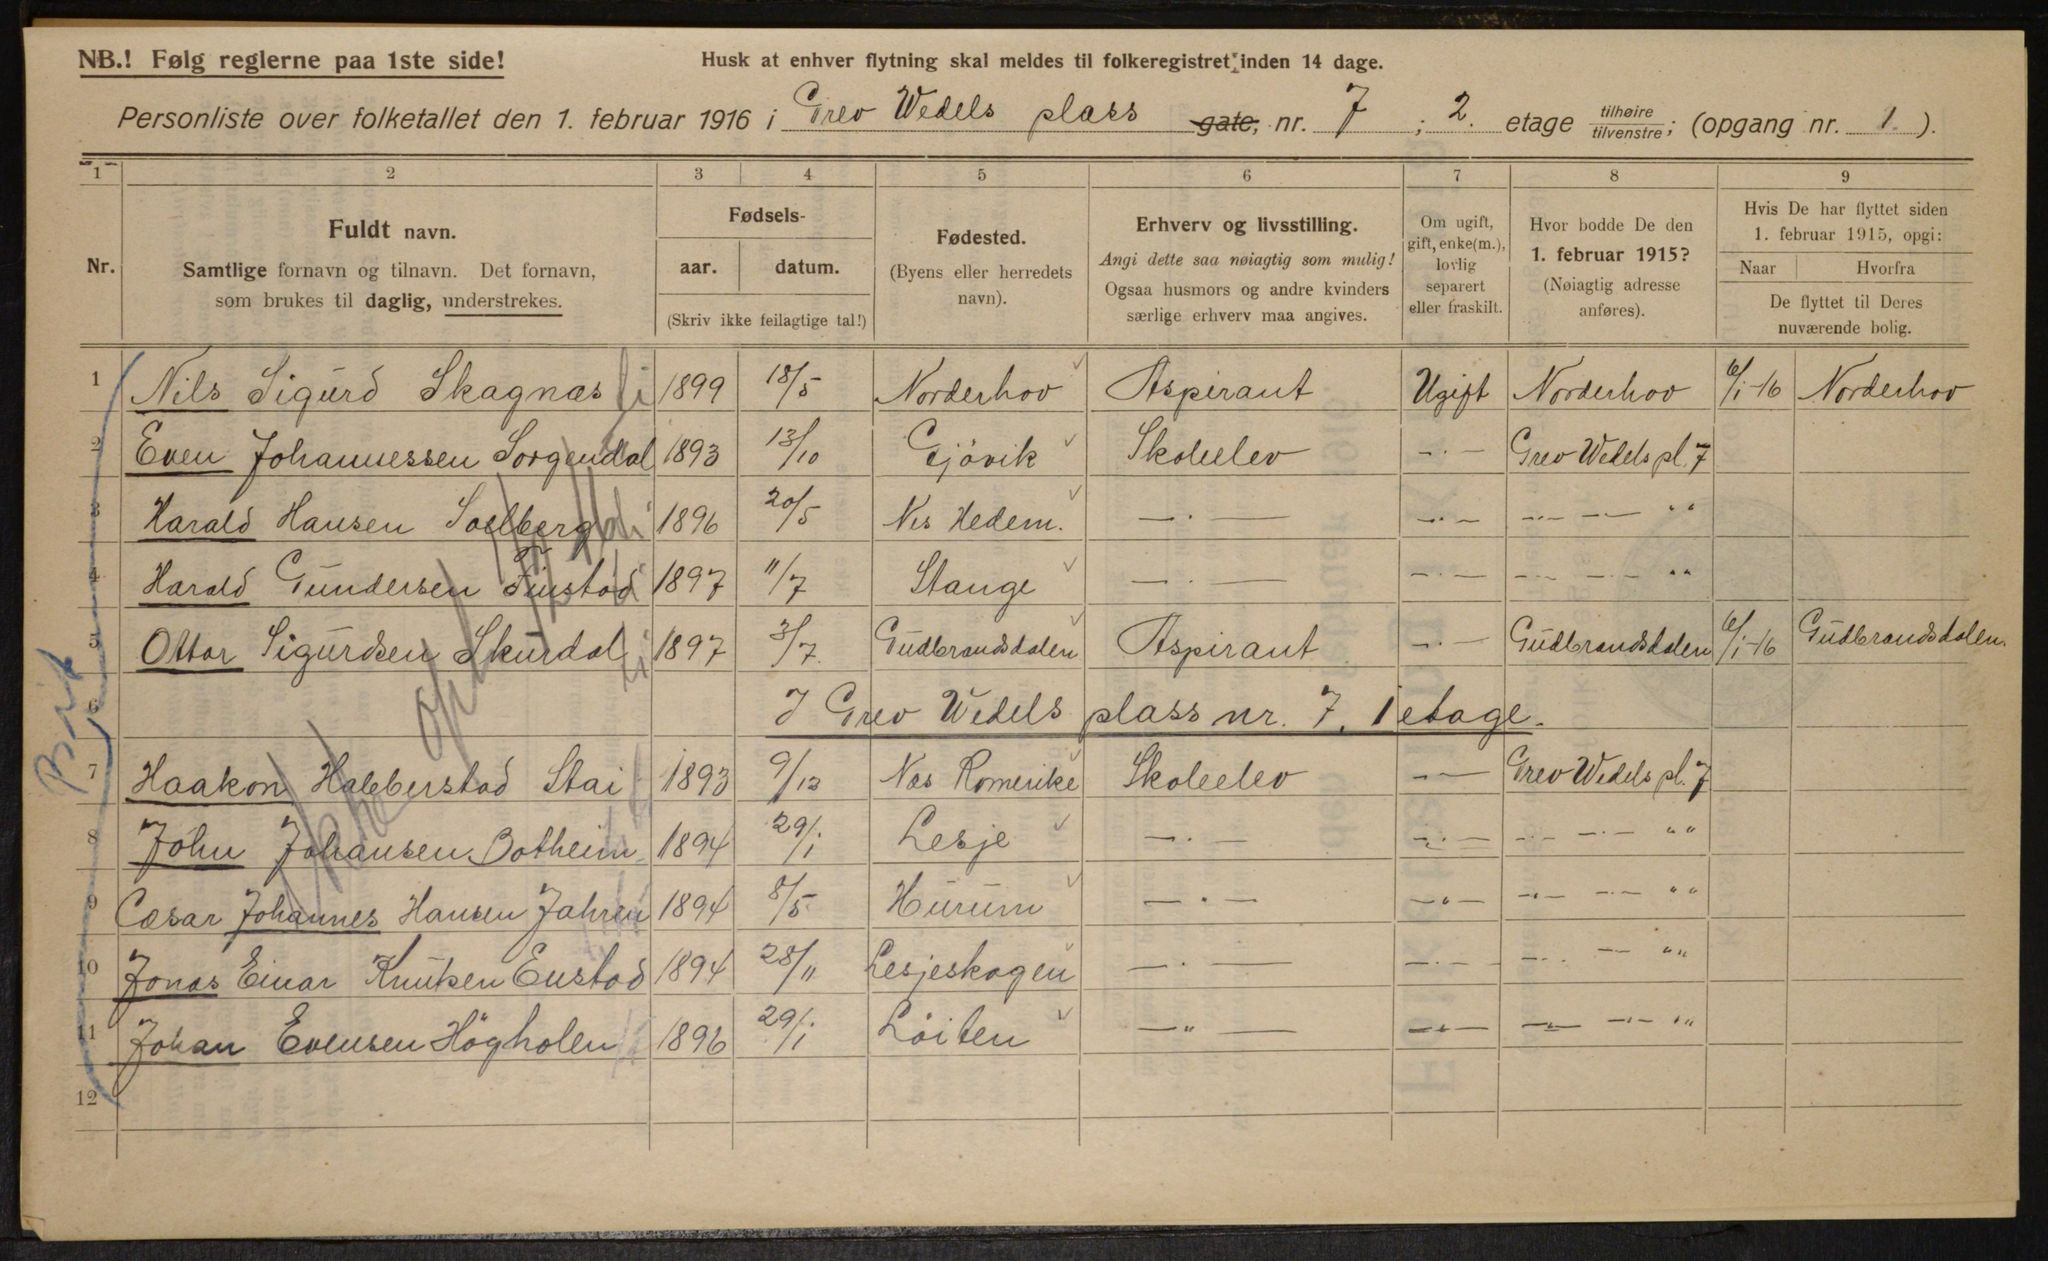 NB.! Følg reglerne paa 1ste side!
Husk at enhver flytning skal meldes til folkeregistret inden 14 dage.
Personliste over folketallet den 1. februar 1916 i Grev Wedels plass gate, nr. 7 ; 2. etage tilhøire tilvenstre ; (opgang nr. 1. ).
1 2 3 4 5 6 7 8 9
Nr.
Fuldt navn.
Samtlige fornavn og tilnavn. Det fornavn,
som brukes til daglig, understrekes.
Fødsels-
aar. datum.
(Skriv ikke feilagtige tal!)
Fødested.
(Byens eller herredets
navn).
Erhverv og livsstilling.
Angi dette saa nøiagtig som mulig!
Ogsaa husmors og andre kvinders
særlige erhverv maa angives.
Om ugift,
gift, enke(m.),
lovlig
separert
eller fraskilt.
Hvor bodde De den
1. februar 1915?
(Nøiagtig adresse
anføres).
Hvis De har flyttet siden
1. februar 1915, opgi:
Naar Hvorfra
De flyttet til Deres
nuværende bolig.
1 Nils Sigurd Skagnæs 1899 18/5 Norderhov Aspirant Ugift Norderhov 6/1-16 Norderhov
2 Even Johannessen Sorgendal 1893 13/10 Gjövik Skoleelev -·- Grev Wedels pl. 7
3 Harald Hansen Soelberg 1896 20/5 Nes Hedem. -·- -·- -·- -·- "
4 Harald Gundersen Finstad 1897 11/7 Stange -·- -·- -·- -·- "
5 Ottar Sigurdsen Skurdal 1897 3/7 Gudbrandsdalen Aspirant -·- Gudbrandsdalen 6/1-16 Gudbrandsdalen.
6 I Grev Wedels plass nr. 7, 1 etage.
7 Haakon Halberstad Stai 1893 9/12 Nes Romerike Skoleelev -·- Grev Wedels pl. 7
8 John Johansen Botheim 1894 29/1 Lesje -·- -·- -·- -·- "
9 Cæsar Johannes Hansen Jahren 1894 8/5 Hurum -·- -·- -·- -·- "
10 Jonas Einar Knutsen Enstad 1894 28/11 Lesjeskogen -·- -·- -·- -·- "
11 Johan Evensen Högholen 1896 29/1 Löiten -"- -·- -·- -·- "
12